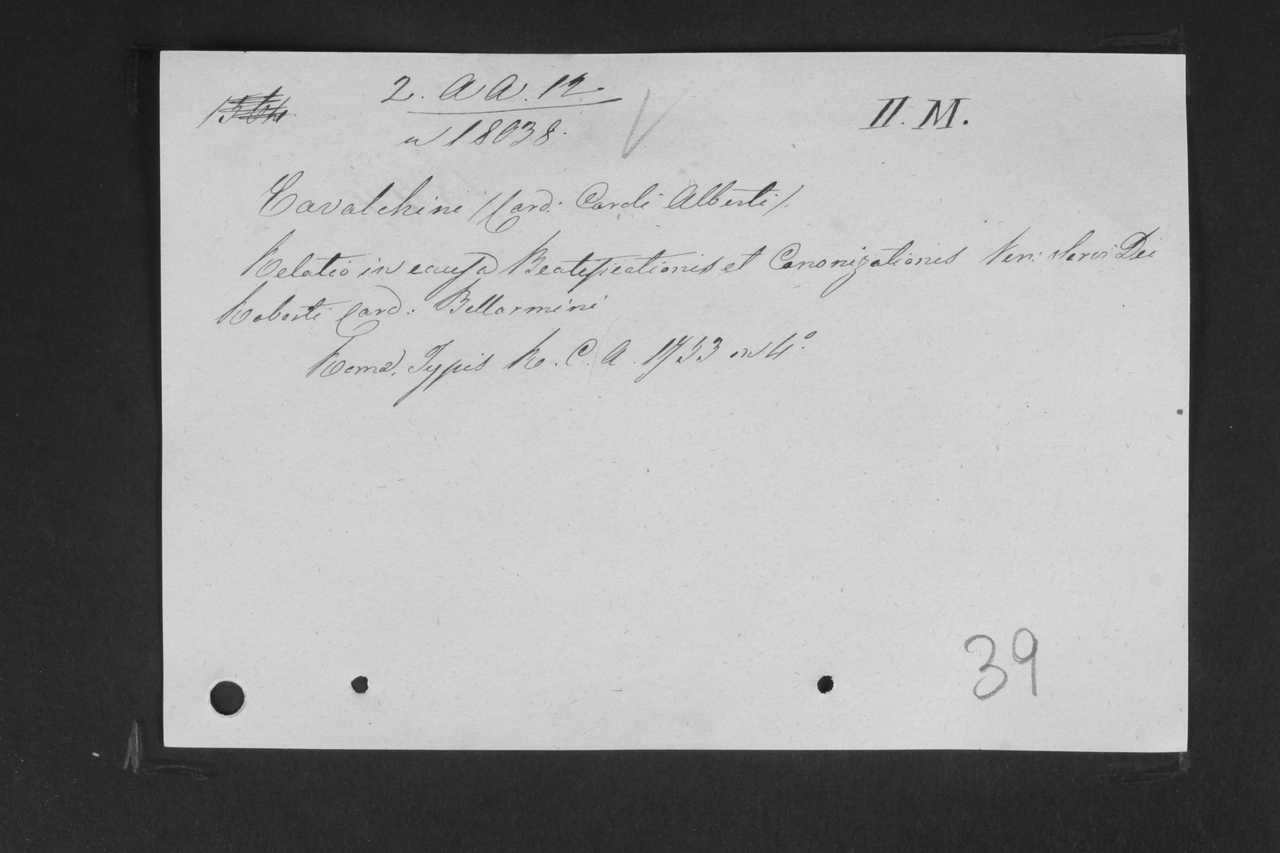 2. A A. 12
n 18038.
II. M.
Cavalchini /Card: Caroli Alberti/
Relatio in causa Beatificationis et Canonizationis Ven: Servi Dei
Roberti Card: Bellarmini
Romæ. Typis R. C. A. 1733 in 4.º
39